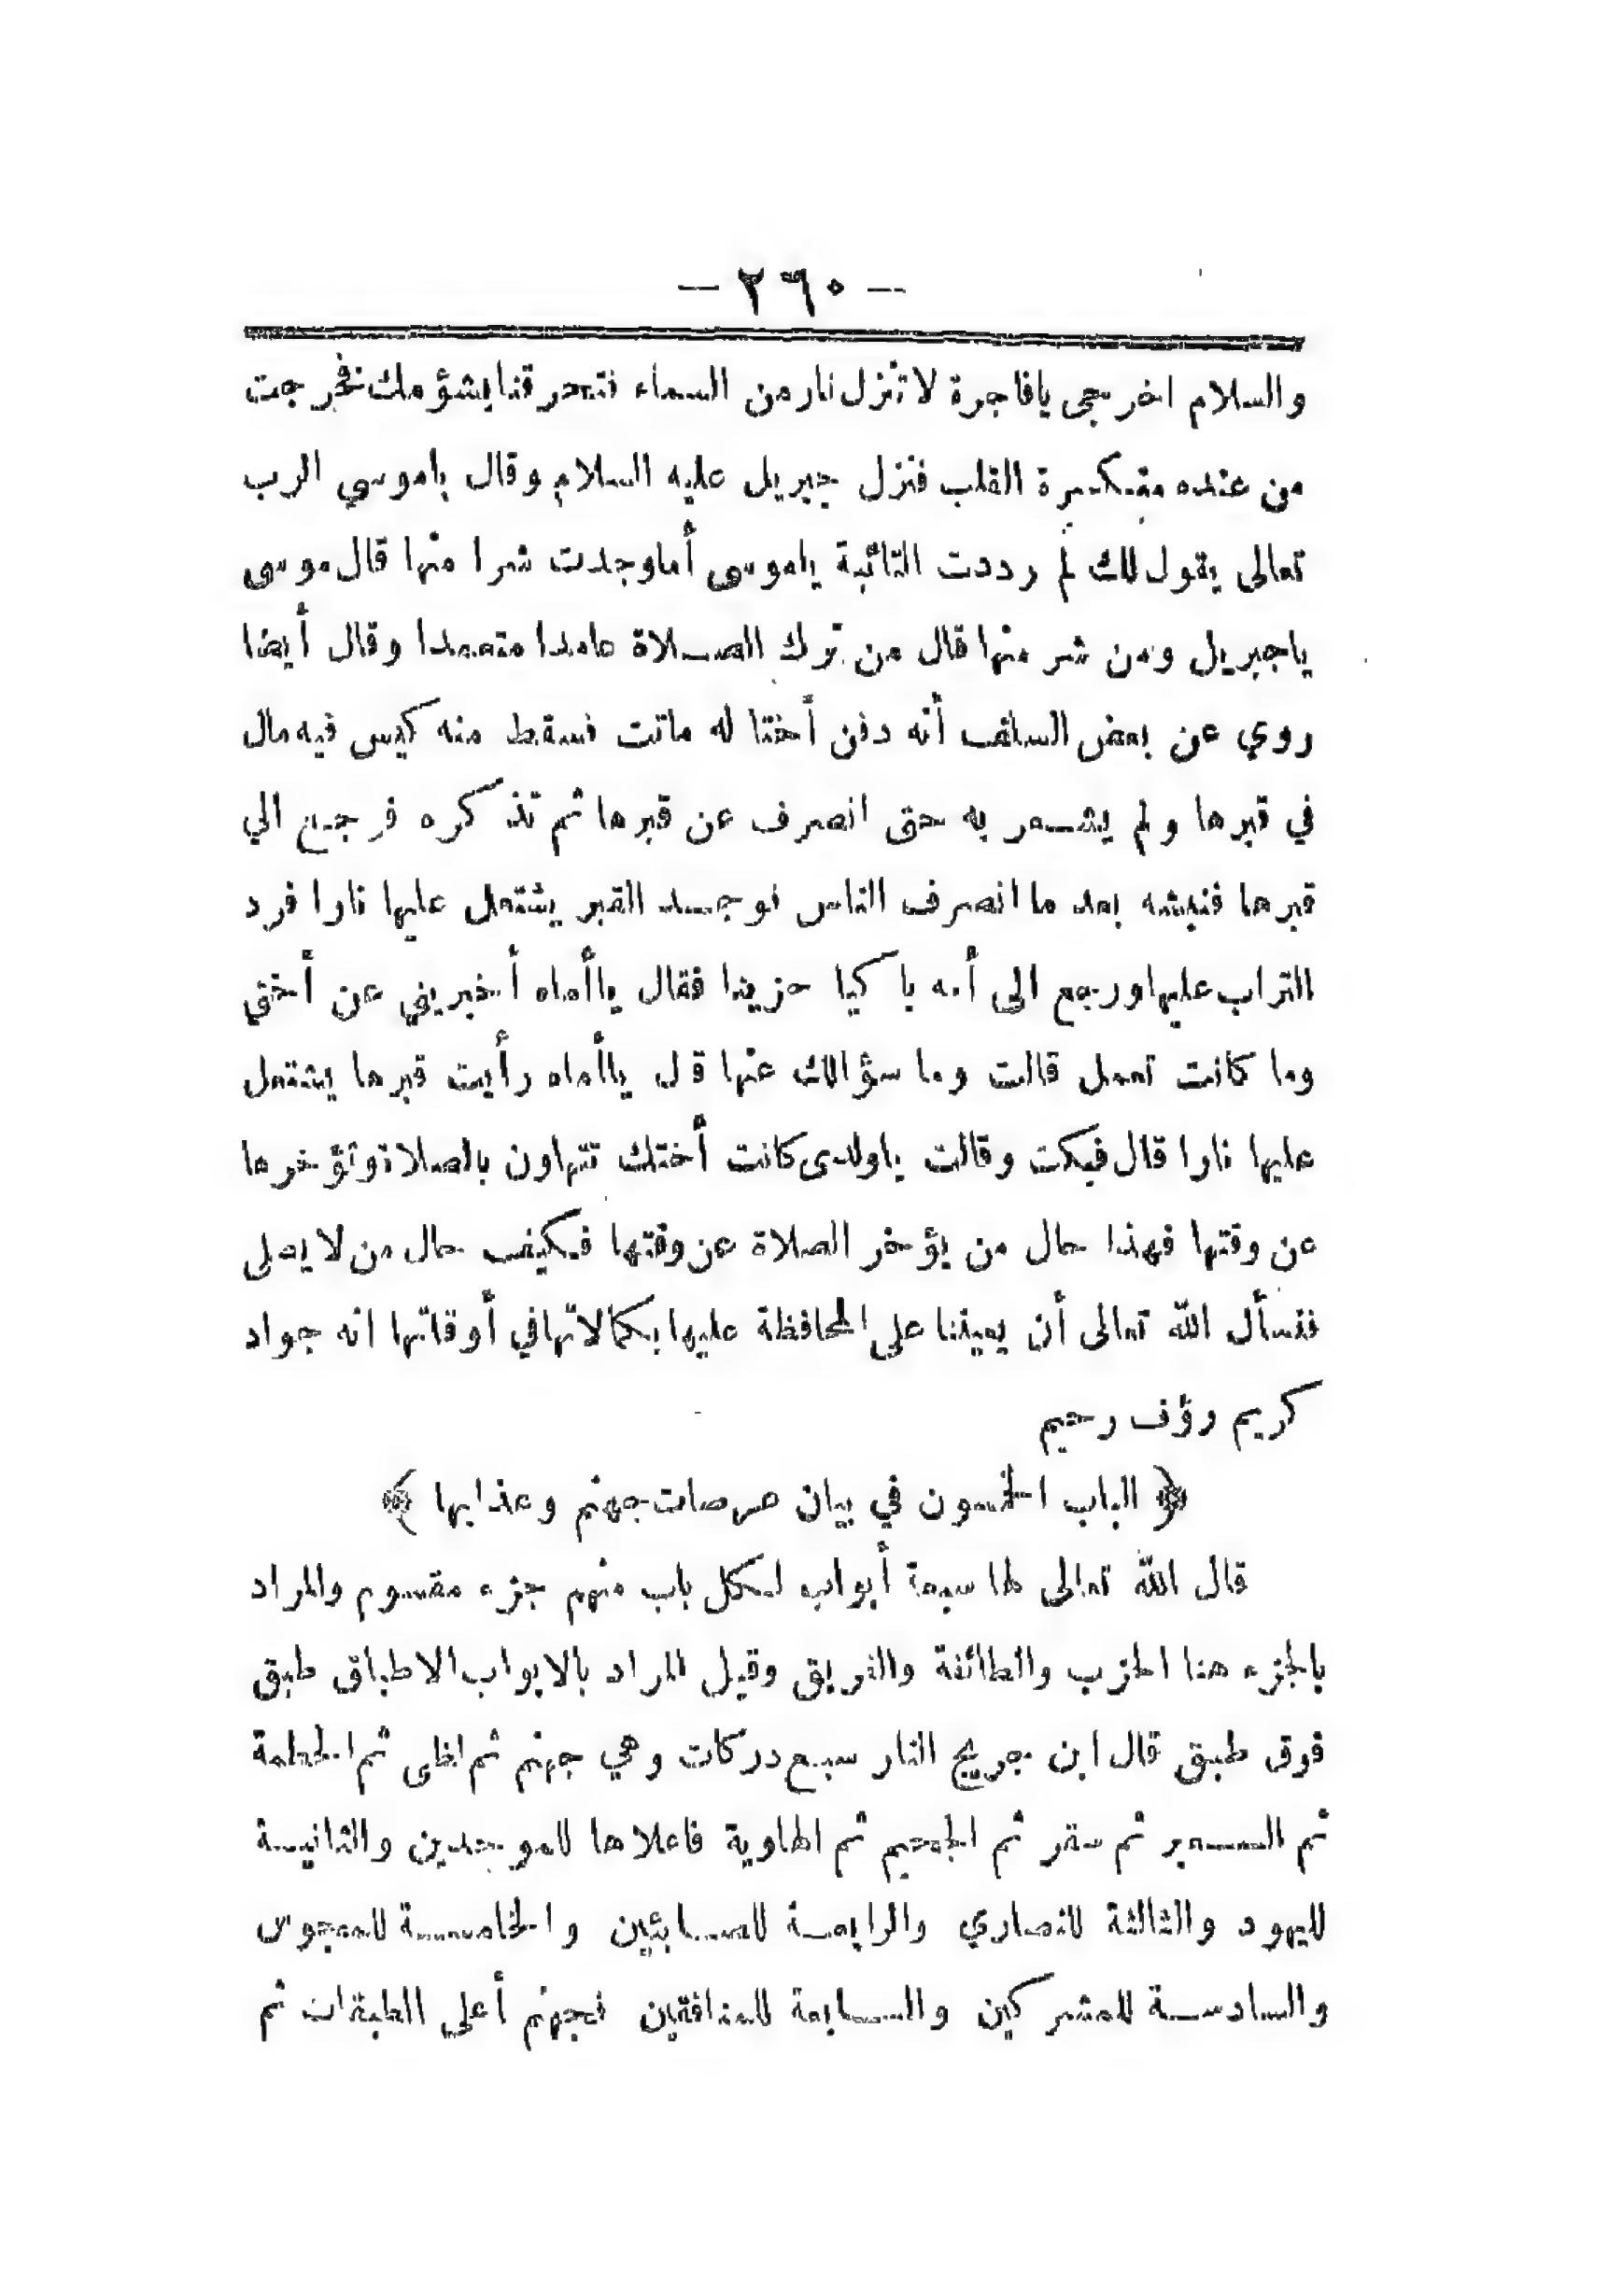 — ٢٦٠ —
والسلام اخرجى يافاجرة لا تنزل نار من السماء فتحرقنا بشؤمك فخرجت
من عنده منكسرة القلب فنزل جبريل عليه السلام وقال ياموسي الرب
تعالى يقول لك لم رددت التائبة ياموسى أما وجدت شرا منها قال موسى
ياجبريل ومن شر منها قال من ترك الصلاة عامدا متعمدا وقال أيضا
روي عن بعض السلف أنه دفن أختا له ماتت فسقط منه كيس فيه مال
في قبرها ولم يشعر به حتى انصرف عن قبرها ثم تذكره فرجع الي
قبرها فنبشه بعد ما انصرف الناس فوجد القبر يشتعل عليها نارا فرد
التراب عليها ورجع الى أمه باكيا حزينا فقال ياأماه أخبريني عن أختي
وما كانت تعمل قالت وما سؤالك عنها قل ياأماه رأيت قبرها يشتعل
عليها نارا قال فبكت وقالت ياولدى كانت أختك تتهاون بالصلاة وتؤخرها
عن وقتها فهذا حال من يؤخر الصلاة عن وقتها فكيف حال من لا يصلى
فنسأل الله تعالى أن يعيننا على المحافظة عليها بكمالاتها في أوقاتها انه جواد
كريم رؤف رحيم
﴿ الباب الخمسون في بيان عرصات جهنم وعذابها ﴾
قال الله تعالى لها سبعة أبواب لكل باب منهم جزء مقسوم والمراد
بالجزء هنا الحزب والطائفة والفريق وقيل المراد بالابواب الاطباق طبق
فوق طبق قال ابن جريج النار سبع دركات وهي جهنم ثم لظى ثم الحطمة
ثم السعير ثم سقر ثم الجحيم ثم الهاوية فاعلاها للموحدين والثانية
لليهود والثالثة للنصاري والرابعة للصابئين والخامسة للمجوس
والسادسة للمشركين والسابعة للمنافقين فجهنم أعلى الطبقات ثم